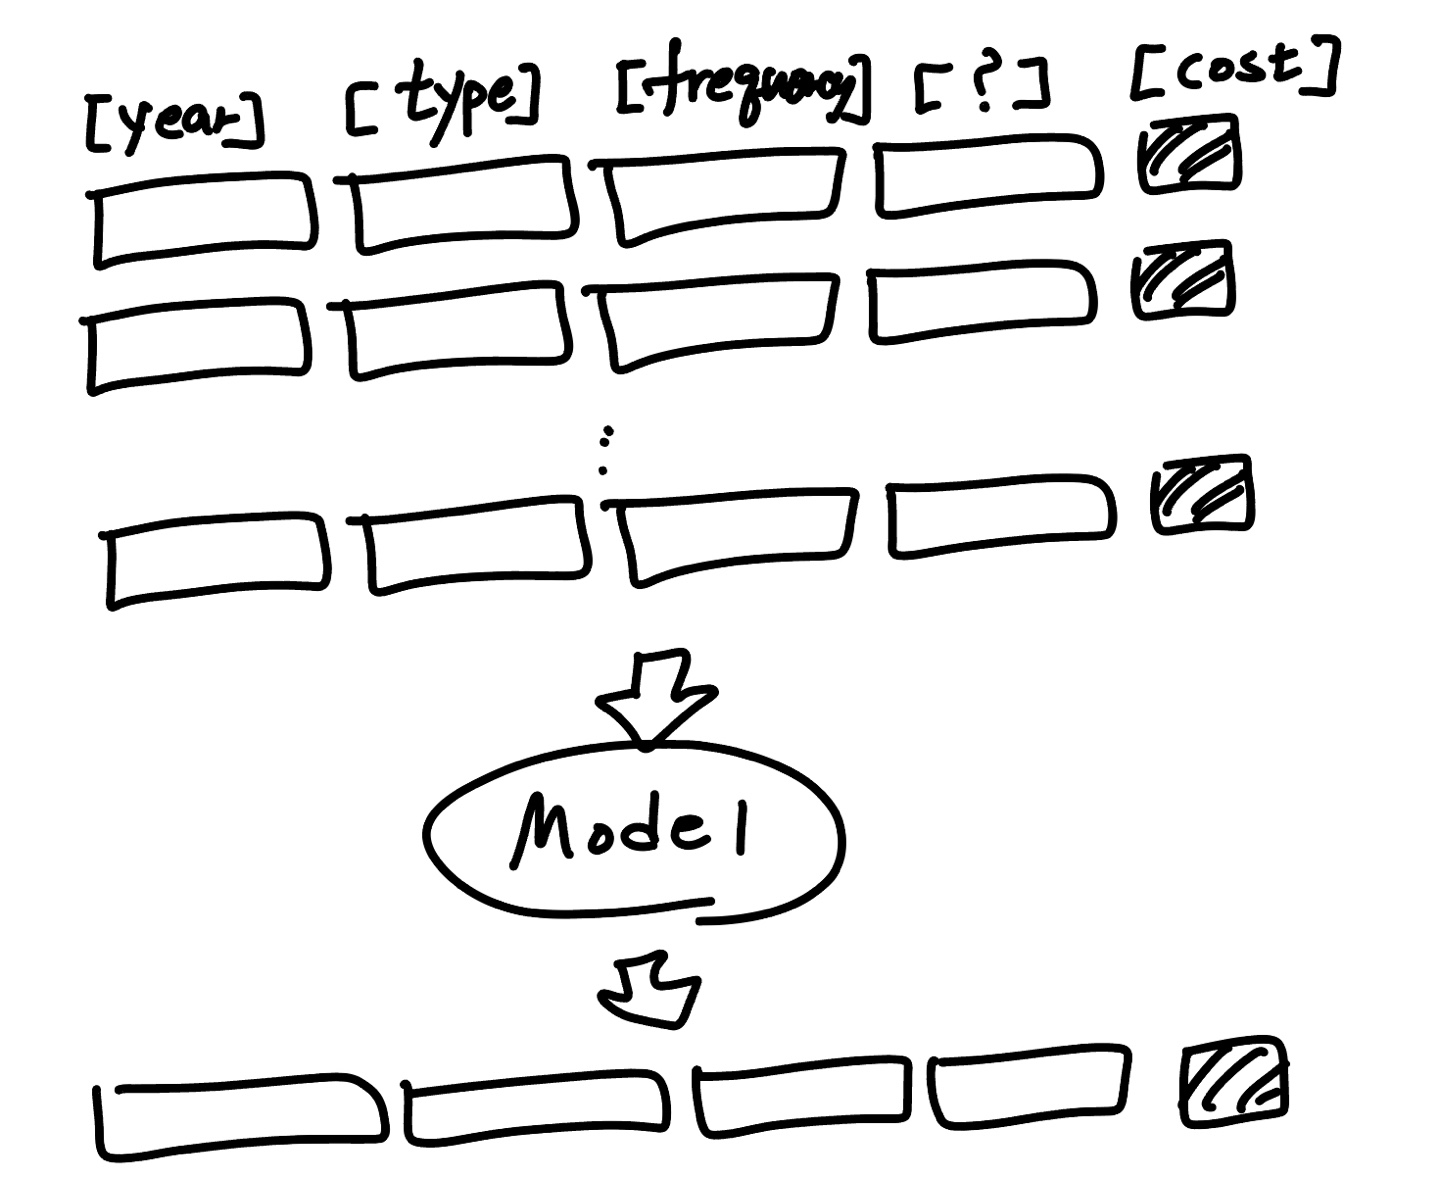 [year] [type] [frequency] [?] [cost]
Model